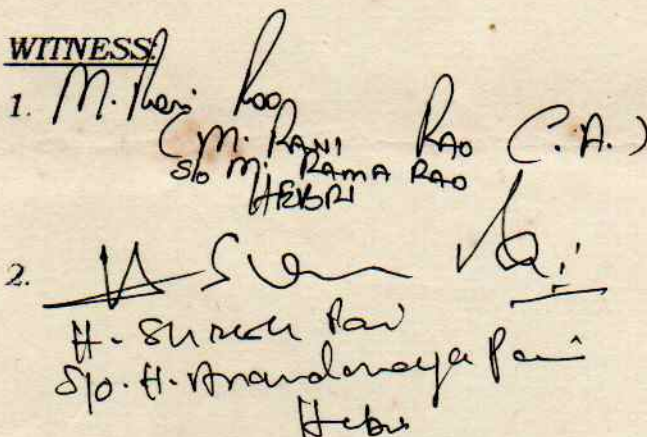 WITNESS:
1. M. Rao
(M. RANI RAO (C.A.)
S/o M. RAMA RAO
HEBRI
2.
H. Suresh Pai
S/o. H. Anandaraya Pai
Hebri